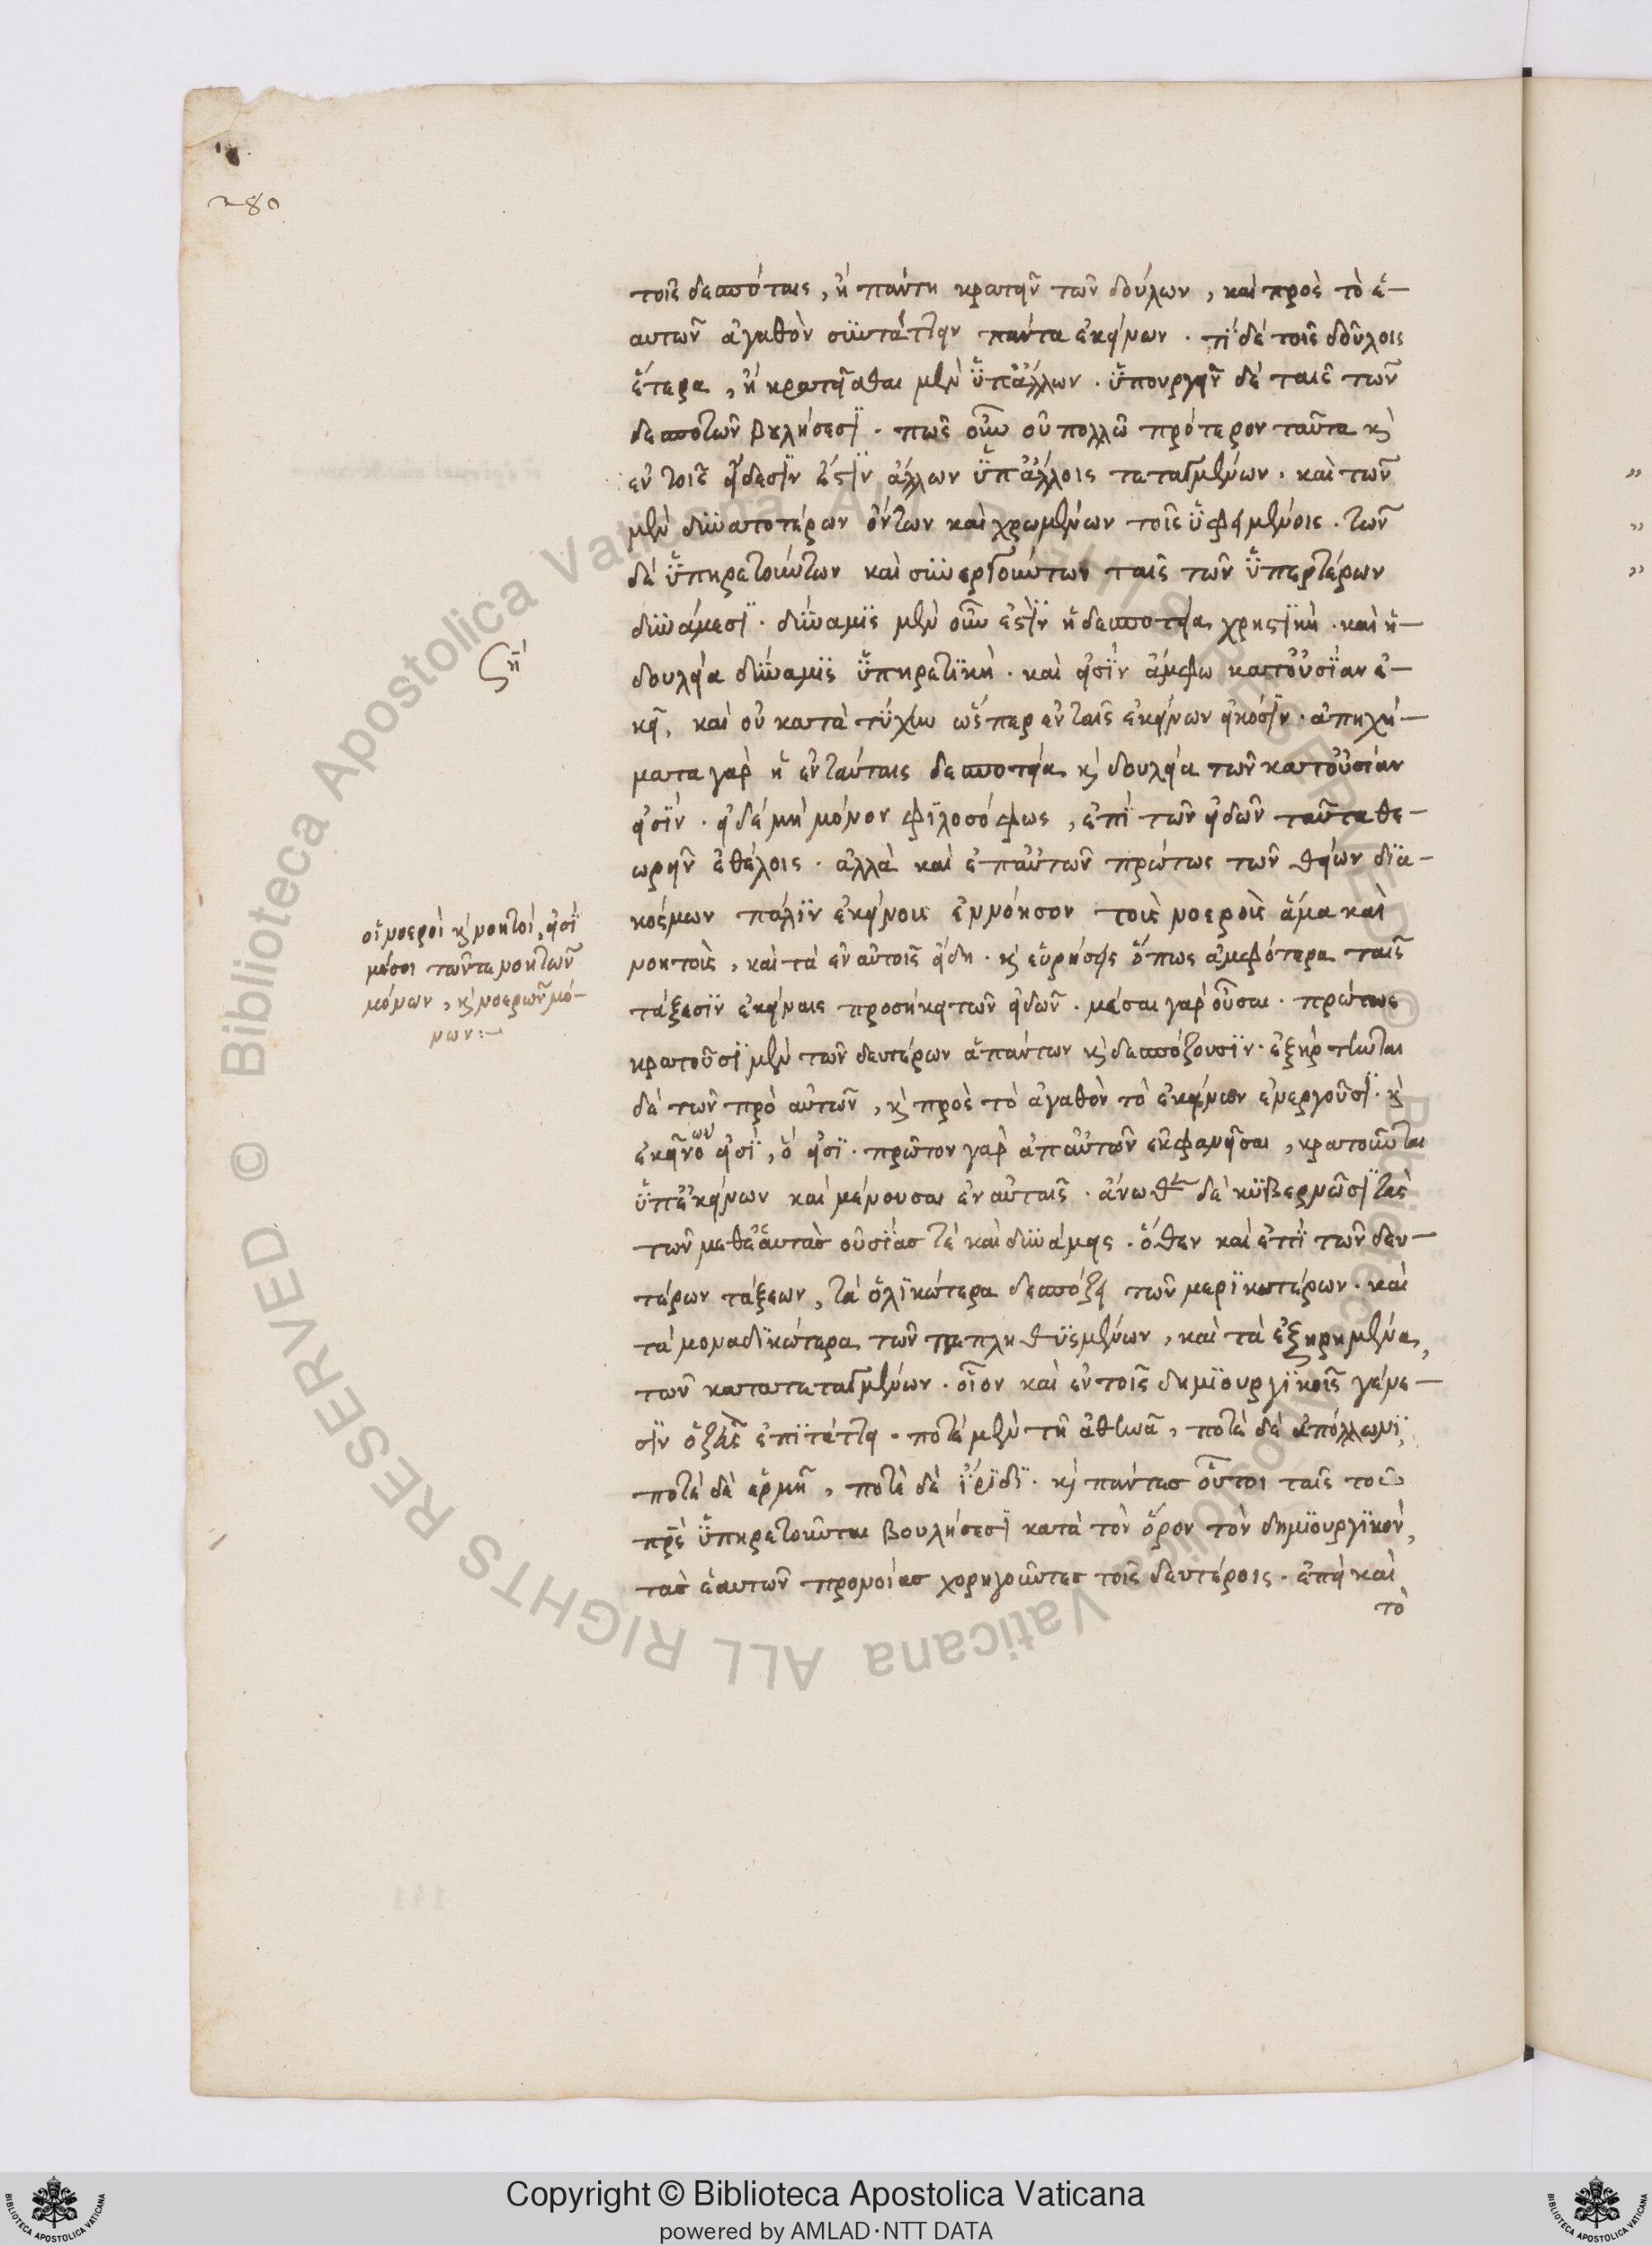 280
τοῖς δεσπόταις, ἢ πάντη κρατεῖν τῶν δούλων, καὶ πρὸς τὸ ἑ–
αυτῶν ἀγαθὸν συντάττειν πάντα ἐκείνων. τί δὲ τοῖς δούλοις
ἕτερα, ἢ κρατεῖσθαι μὲν ὑπ' ἄλλων. ὑπουργεῖν δὲ ταῖς τῶν
δεσποτῶν βουλήσεσι. πῶς οὖν οὐ πολλῶ πρότερον ταῦτα κὶ
ἐν τοῖς εἴδεσιν ἐστὶν ἄλλων ὑπ' ἄλλοις τεταγμένων. καὶ τῶν
μὲν δυνατοτέρων ὄντων καὶ χρωμένων τοῖς ὑφειμένοις. τῶν
δὲ ὑπηρετούντων καὶ συνεργούντων ταῖς τῶν ὑπερτέρων
δυνάμεσι. δύναμις μὲν οὖν ἐστὶν ἡ δεσποτεία χρηστικὴ. καὶ ἡ–
ζη΄
δουλεία δύναμις ὑπηρετικὴ. καὶ εἰσὶν ἄμφω κατ' οὐσίαν ἐ–
κεῖ, καὶ οὐ κατὰ τύχην ὥσπερ ἐν ταῖς ἐκείνων εἰκόσιν. ἀπηχή–
ματα γὰρ ἡ ἐν ταύταις δεσποτεία κὶ δουλεία τῶν κατ' οὐσίαν
εἰσίν. εἰ δὲ μὴ μόνον φιλοσόφως, ἐπὶ τῶν εἰδῶν ταῦτα θε–
ωρεῖν ἐθέλοις. ἀλλὰ καὶ ἐπ' αὐτῶν πρώτως τῶν θείων δια–
κόσμων πάλιν ἐκείνοις ἐννόησον τοῖς νοεροῖς ἅμα καὶ
οἱ νοεροὶ κὶ νοητοὶ, εἰσὶ
μέσοι τῶν τε νοητῶν
μόνων, κὶ νοερῶν μό–
νων:–
νοητοῖς, καὶ τὰ ἐν αὐτοῖς εἴδη. κὶ εὑρήσεις ὅπως ἀμφότερα ταῖς
τάξεσιν ἐκείναις προσήκει τῶν εἰδῶν. μέσαι γὰρ οὖσαι. πρώτως
κρατοῦσι μὲν τῶν δευτέρων ἁπάντων κὶ δεσπόζουσιν. ἐξήρτηνται
δὲ τῶν πρὸ αὐτῶν, κὶ πρὸς τὸ ἀγαθὸν τὸ ἐκείνων ἐνεργοῦσι. κὶ
ἐκείνων εἰσὶ, ὅ εἰσι. πρῶτον γὰρ ἀπ' αὐτῶν ἐκφανεῖσαι, κρατοῦνται
ὑπ' ἐκείνων καὶ μένουσαι ἐν αὐταῖς. ἄνωθεν δὲ κυβερνῶσι τὰς
τῶν μεθ' ἑαυτὰς οὐσίας τὲ καὶ δυνάμεις. ὅθεν καὶ ἐπὶ τῶν δευ–
τέρων τάξεων, τὰ ὁλικώτερα δεσπόζει τῶν μερικωτέρων. καὶ
τὰ μοναδικώτερα τῶν πεπληθυσμένων, καὶ τὰ ἐξηρημένα,
τῶν κατατεταγμένων. οἷον καὶ ἐν τοῖς δημιουργικοῖς γένε–
σιν ὁ ζεὺς ἐπιτάττει. ποτὲ μὲν τῆ ἀθηνᾶ, ποτὲ δὲ ἀπόλλωνι,
ποτὲ δὲ ἑρμῆ, ποτὲ δὲ ἴριδι. κὶ πάντες οὗτοι ταῖς τοῦ
πρς ὑπηρετοῦνται βουλήσεσι κατὰ τὸν ὅρον τὸν δημιουργικὸν,
τὰς ἑαυτῶν προνοίας χορηγοῦντες τοῖς δευτέροις. ἐπεὶ καὶ
τὸ
© Biblioteca Apostolica Vaticana ALL RIGHTS RESERVED
Copyright © Biblioteca Apostolica Vaticana
powered by AMLAD·NTT DATA